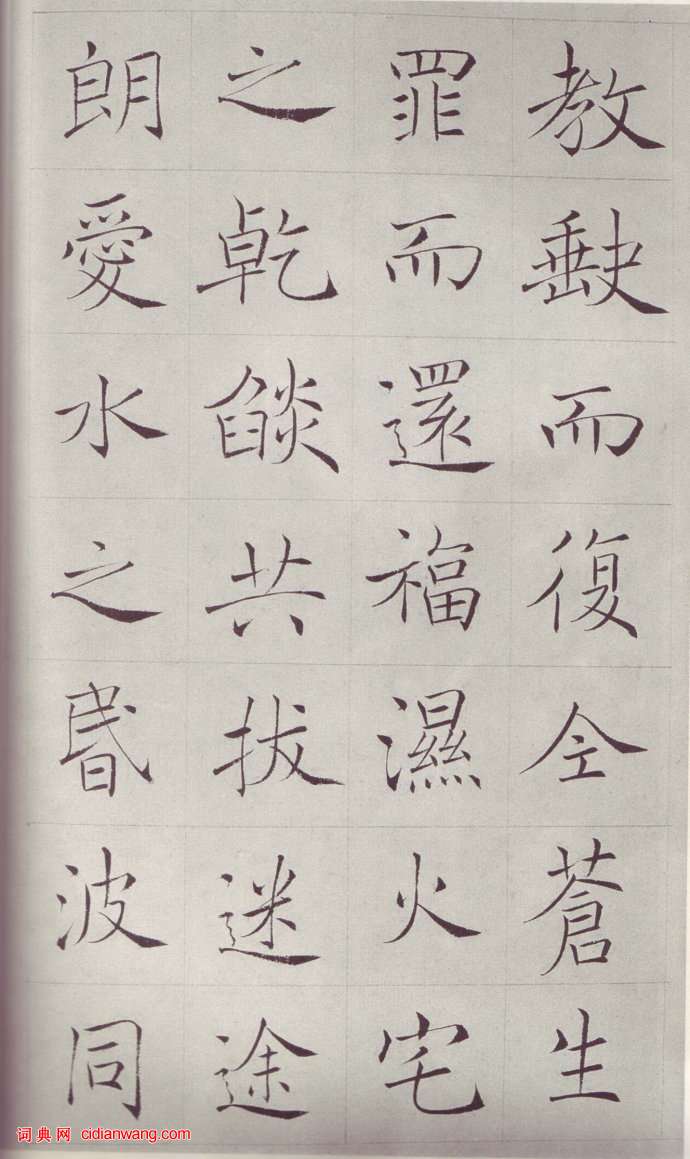 教缺而復仝蒼生
罪而還福濕火宅
之乾燄共拔迷途
朗愛水之昬波同
词典网 cidianwang.com